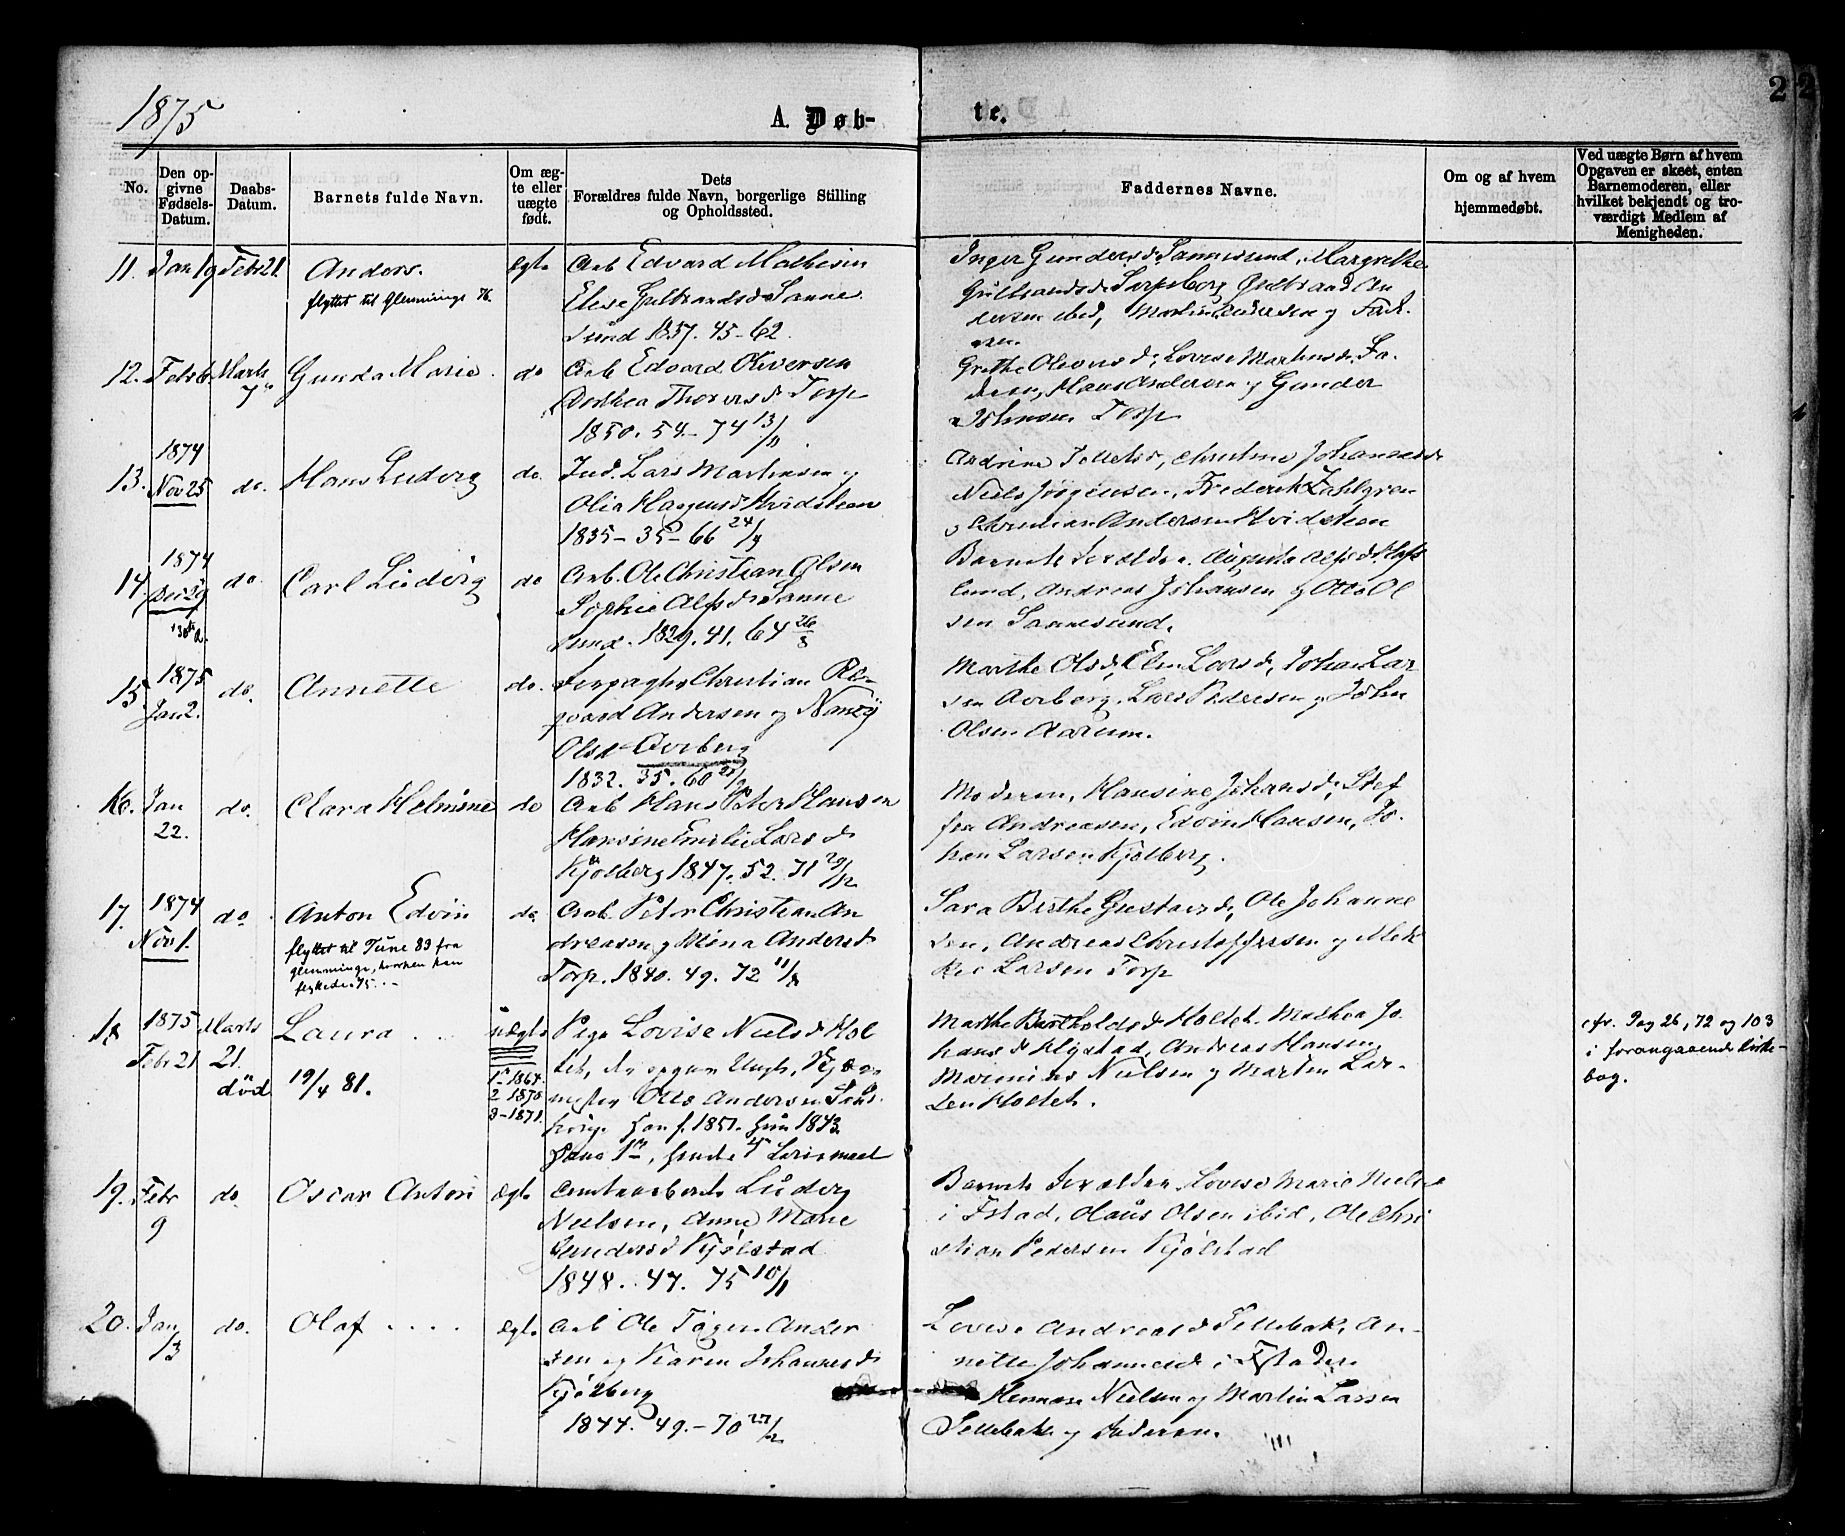 1875
A. Døb-
te.
2
2
No.
Den op-
givne
Fødsels-
Datum.
Daabs-
Datum.
Barnets fulde Navn.
Om æg-
te eller
uægte
født.
Dets
Forældres fulde Navn, borgerlige Stilling
og Opholdssted.
Faddernes Navne.
Om og af hvem
hjemmedøbt.
Ved uægte Børn af hvem
Opgaven er skeet, enten
Barnemoderen, eller
hvilket bekjendt og tro-
værdigt Medlem af
Menigheden.
11. Jan 19 Febr 21. Anders. Ægte Arb Edvard Mathisen
flyttet til Glemminge 76.
Elise Gulbrandsd Sanne
sund 1837. 45-62.
Inger Gundersd Sannesund, Margrethe
Gulbrandsd Sarpsborg Gulbrand An
dersen ibid, Martin Andersen og Fad-
eren.
12. Febr 6 Marts Gunda Marie. do Arb Edvard Oliversen
7de
Dorthea Thorersd Torp
1850. 54.-74 13/11.
Grethe Olavesd, Lovise Martinsd, Fa-
deren, Hans Andersen og Gunder
Johnsen Torp
1874
13. Nov 25 do. Hans Ludvig do. Ind. Lars Martinsen og
Olia Magnusd Hvidsteen
1835-35-66 24/9
Andrine Pellesd, Christine Johannesd
Niels Jörgensen, Frederik Zahlgren
og Christian Andersen Hvidsteen
1874
14 Dec 29 do Carl Ludvig do Arb. Ole Christian Olsen
Sophie Alfsd Sanne
sund. 1829. 41. 64 26/3
Barnets Forældre, Augusta Alfsd Hafs
lund, Andreas Johansen og Otto Ol
sen Sannesund.
1875
15. Jan 2. do. Annette do. Forpagter Christian Re-
gvard Andersen og Nancy
Olsd Avrberg
1832. 35. 60
Marthe Olsd, Elen Larsd, Johan Lar
sen Avrberg, Lars Pedersen og Johan
Olsen Aarum.
16. Jan do. Clara Helmine do Arb Hans Peter Hansen
22.
Hansine Emilie Larsd
Kjølberg 1847. 52. 71 29/12
Moderen, Hansine Johansd, Stef
fen Andreasen, Edvin Hansen, Jo-
han Larsen Kjølberg.
17. 1874 do Anton Edvin do Arb Peter Christian An
Nov 1.
flyttet til Tune 83 fra
glemminge, hvorhen han
flyttede 75...
dreasen og Mina Andersd
Torp. 1840. 49. 72 11/8
Sara Birthe Gustavsd, Ole Johanne
sen, Andreas Christoffersen og Mik
kel Larsen Torp
18 1875 Marts Laura .. uægte Pige Lovise Nielsd Hol
Febr 21 21.
død 19/4 81.
1ste 1864.
2 1870
3-1871.
tet, do opgav Ungk. Skjær
mester Otto Andersen Sars
borg. Han f. 1851. Hun 1843.
Hans 1ste, hendes 4de Leiermaal
Marthe Bartholdsd Holtet. Mathea Jo
hansd Klystad, Andreas Hansen,
Marinius Nielsen og Martin Lar-
sen Holtet.
cfr. Pag 26, 72 og 103
i forangaaende Kirke-
bog.
19. Febr do. Oscar Anton Ægte Contraarbeider Ludvig
9
Nielsen, Anne Marie
Gundersd Kjølstad
1848. 47. 75 10/1
Barnets Forældre, Lovise Marie Nielsd
i Istad, Claus Olsen ibid, Ole Chri
stian Pedersen Kjølstad
20. Jan do. Olaf .... Ægte Arb Ole Töger Ander
13
sen og Karen Johannesd
Kjølberg
1844. 49.-70 27/12
Lovise Andreasd Sellebak, An-
nette Johannesd i Istad,
Herman Nielsen og Martin Larsen
Sellebak og Faderen.